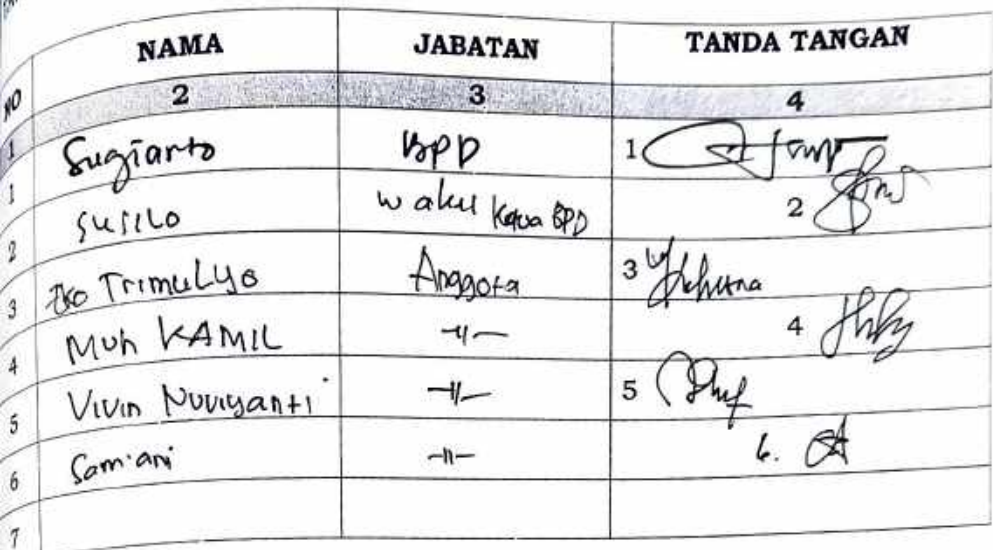 NO NAMA JABATAN TANDA TANGAN
1 2 3 4
1 Sugiarto BPD 1
2 SUSILO wakil Ketua BPD 2
3 Eko TrimuLyo Anggota 3
4 MUh KAMIL -11- 4
5 Vivin Noviyanti -11- 5
6 Samiani -11- 6.
7